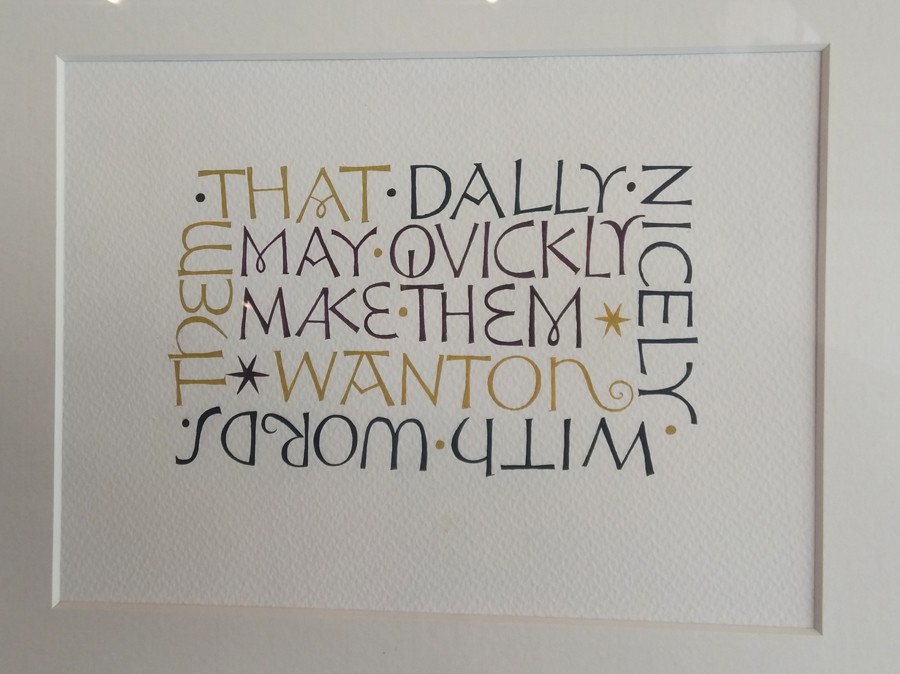 THEM
·THAT·DALLY·
NICELY·
WITH·WORDS·
MAY·QVICKLY
MAKE·THEM
WANTON